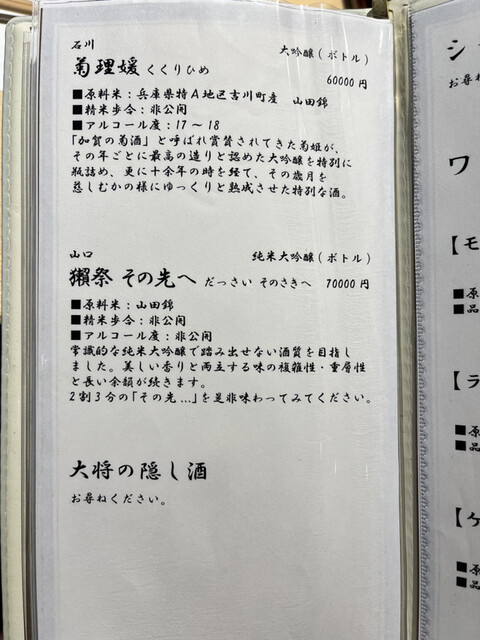 石川
大吟醸(ボトル)
菊理媛 くくりひめ
60000円
■原料米:兵庫県特A地区吉川町産 山田錦
■精米歩合:非公開
■アルコール度:17〜18
「加賀の菊酒」と呼ばれ賞賛されてきた菊姫が、
その年ごとに最高の造りと認めた大吟醸を特別に
瓶詰め、更に十余年の時を経て、その歳月を
慈しむかの様にゆっくりと熟成させた特別な酒。
山口
純米大吟醸(ボトル)
獺祭 その先へ だっさい そのさきへ 70000円
■原料米:山田錦
■精米歩合:非公開
■アルコール度:非公開
常識的な純米大吟醸で踏み出せない酒質を目指し
ました。美しい香りと両立する味の複雑性・重層性
と長い余韻が続きます。
2割3分の「その先...」を是非味わってみてください。
大将の隠し酒
お尋ねください。
シ
お尋ね
ワ
【モ
■原
■品
【ラ
■原
■品
【ケ
■原
■品